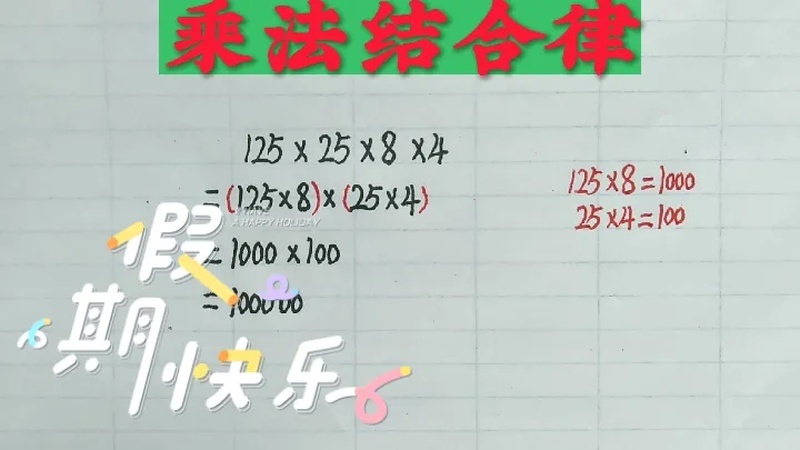 乘法结合律
125×25×8×4
=(125×8)×(25×4)
=1000×100
=100000
125×8=1000
25×4=100
A HAPPY HOLIDAY
假
期快乐